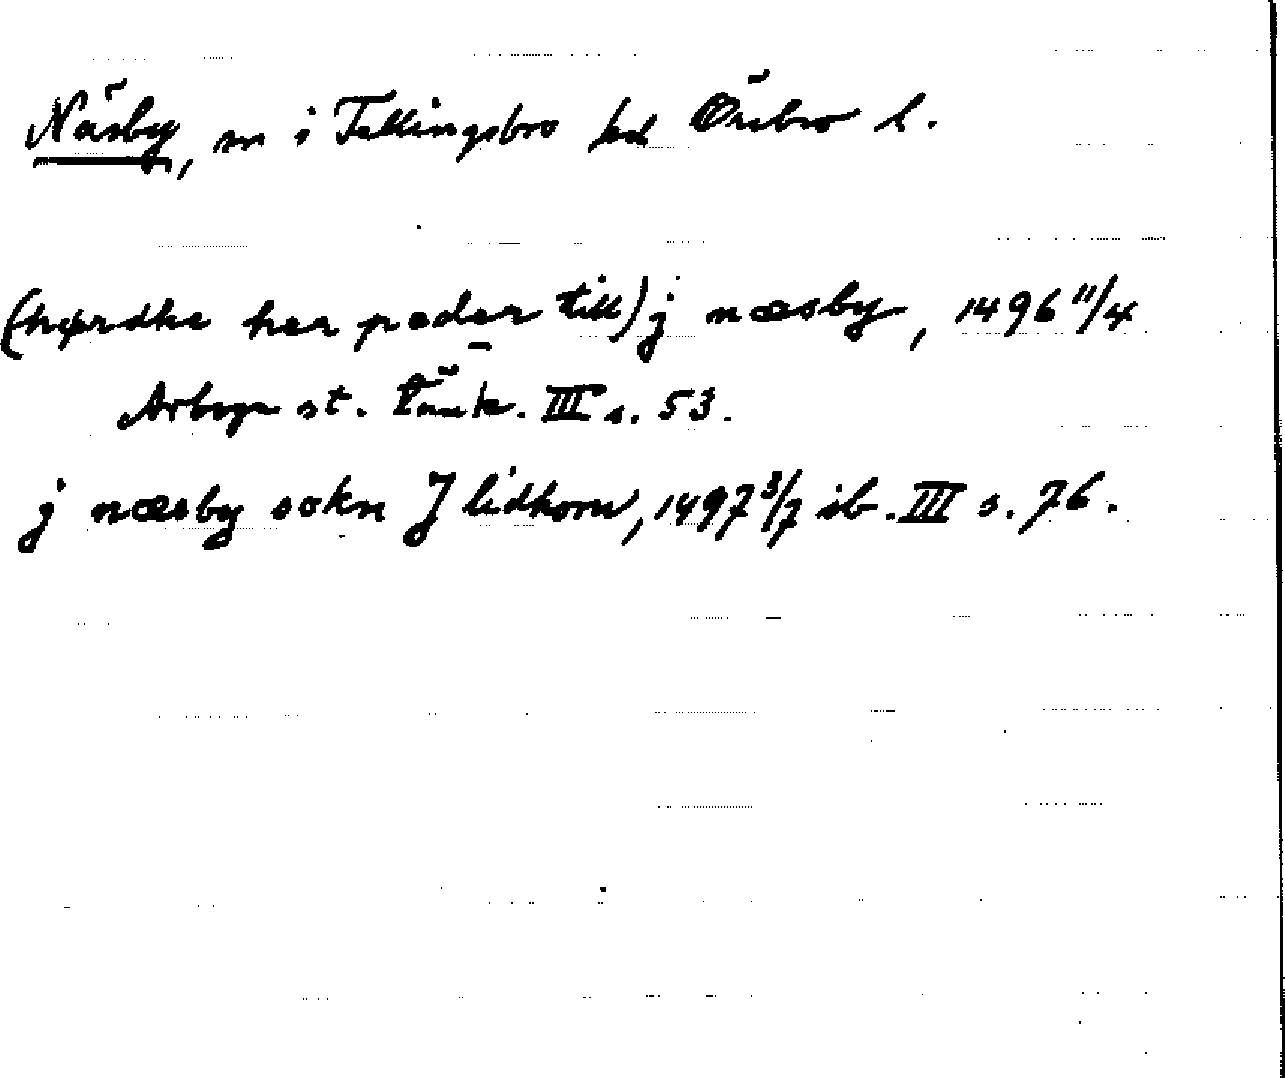 Näsby, sn i Fellingsbro hd Örebro l.
(hørdhe her pæder till) j næsby, 1496 11/4
Arboga st. tänk. III s. 53.
j næsby sokn J lidhom, 1497 3/7 ib. III s. 76.